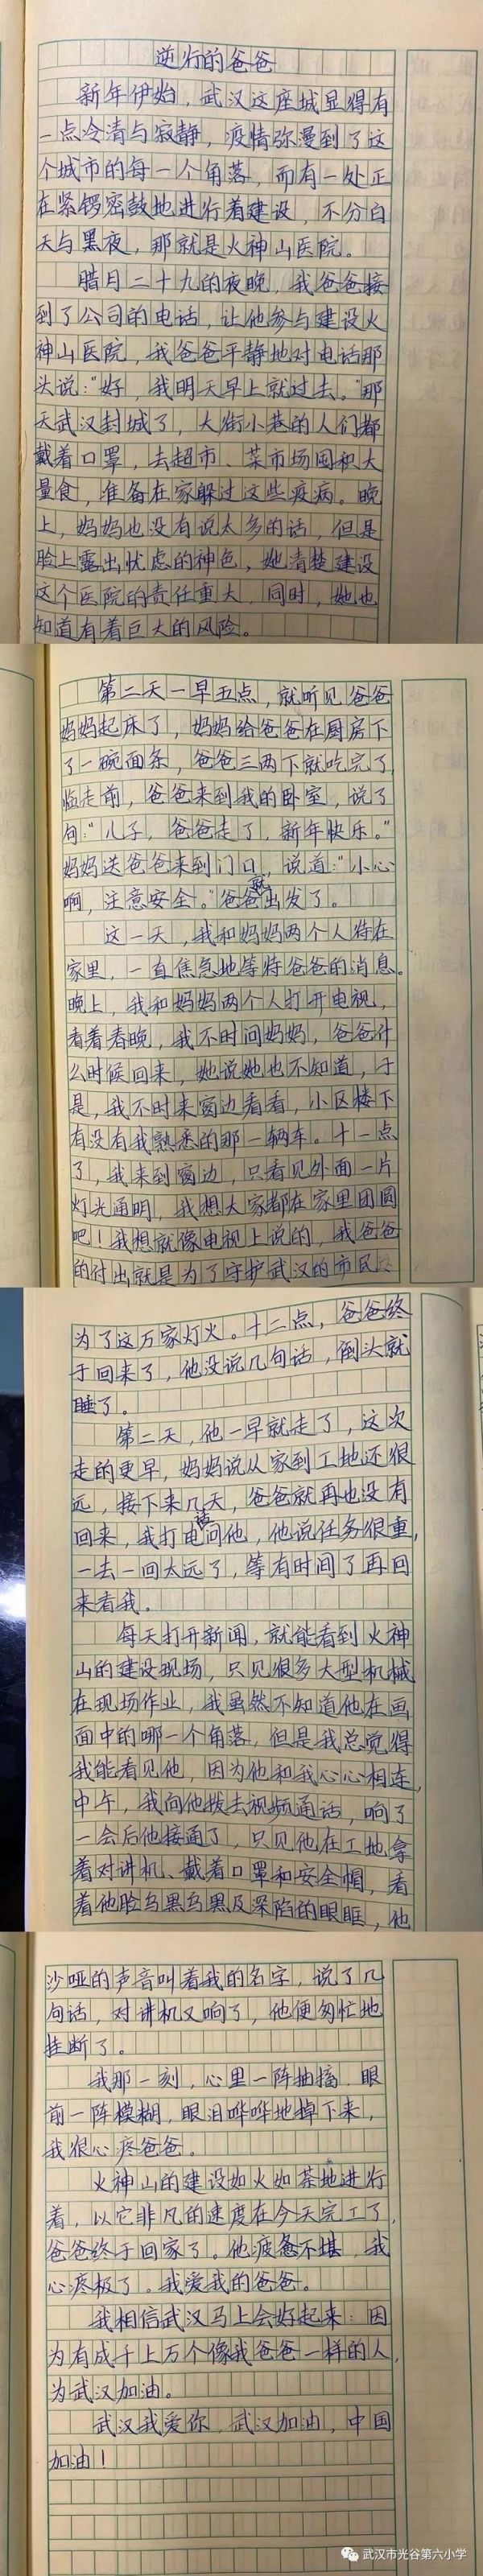 逆行的爸爸
新年伊始，武汉这座城显得有
一点冷清与寂静，疫情弥漫到了这
个城市的每一个角落，而有一处正
在紧锣密鼓地进行着建设，不分白
天与黑夜，那就是火神山医院。
腊月二十九的夜晚，我爸爸接
到了公司的电话，让他参与建设火
神山医院，我爸爸平静地对电话那
头说："好，我明天早上就过去。"那
天武汉封城了，大街小巷的人们都
戴着口罩，去超市、菜市场囤积大
量食，准备在家躲过这些疫病。晚
上，妈妈也没有说太多的话，但是
脸上露出忧虑的神色，她清楚建设
这个医院的责任重大，同时，她也
知道有着巨大的风险。
第二天一早五点，就听见爸爸
妈妈起床了，妈妈给爸爸在厨房下
了一碗面条，爸爸三两下就吃完了，
临走前，爸爸来到我的卧室，说了
句："儿子，爸爸走了，新年快乐。"
妈妈送爸爸来到门口，说道："小心
啊，注意安全。"爸爸就出发了。
这一天，我和妈妈两个人待在
家里，一直焦急地等待爸爸的消息。
晚上，我和妈妈两个人打开电视，
看着春晚，我不时问妈妈，爸爸什
么时候回来，她说她也不知道，于
是，我不时来窗边看看，小区楼下
有没有我熟悉的那一辆车。十一点
了，我来到窗边，只看见外面一片
灯光通明，我想大家都在家里团圆
吧！我想就像电视上说的，我爸爸
的付出就是为了守护武汉的市民，
为了这万家灯火。十二点，爸爸终
于回来了，他没说几句话，倒头就
睡了。
第二天，他一早就走了，这次
走的更早，妈妈说从家到工地还很
远，接下来几天，爸爸就再也没有
回来，我打电话问他，他说任务很重，
一去一回太远了，等有时间了再回
来看我。
每天打开新闻，就能看到火神
山的建设现场，只见很多大型机械
在现场作业，我虽然不知道他在画
面中的哪一个角落，但是我总觉得
我能看见他，因为他和我心心相连，
中午，我向他拨去视频通话，响了
一会后他接通了，只见他在工地拿
着对讲机、戴着口罩和安全帽，看
着他脸乌黑乌黑及深陷的眼眶，他
沙哑的声音叫着我的名字，说了几
句话，对讲机又响了，他便匆忙地
挂断了。
我那一刻，心里一阵抽搐，眼
前一阵模糊，眼泪哗哗地掉下来，
我很心疼爸爸。
火神山的建设如火如荼地进行
着，以它非凡的速度在今天完工了，
爸爸终于回家了。他疲惫不堪，我
心疼极了。我爱我的爸爸。
我相信武汉马上会好起来：因
为有成千上万个像我爸爸一样的人，
为武汉加油。
武汉我爱你，武汉加油，中国
加油！
武汉市光谷第六小学